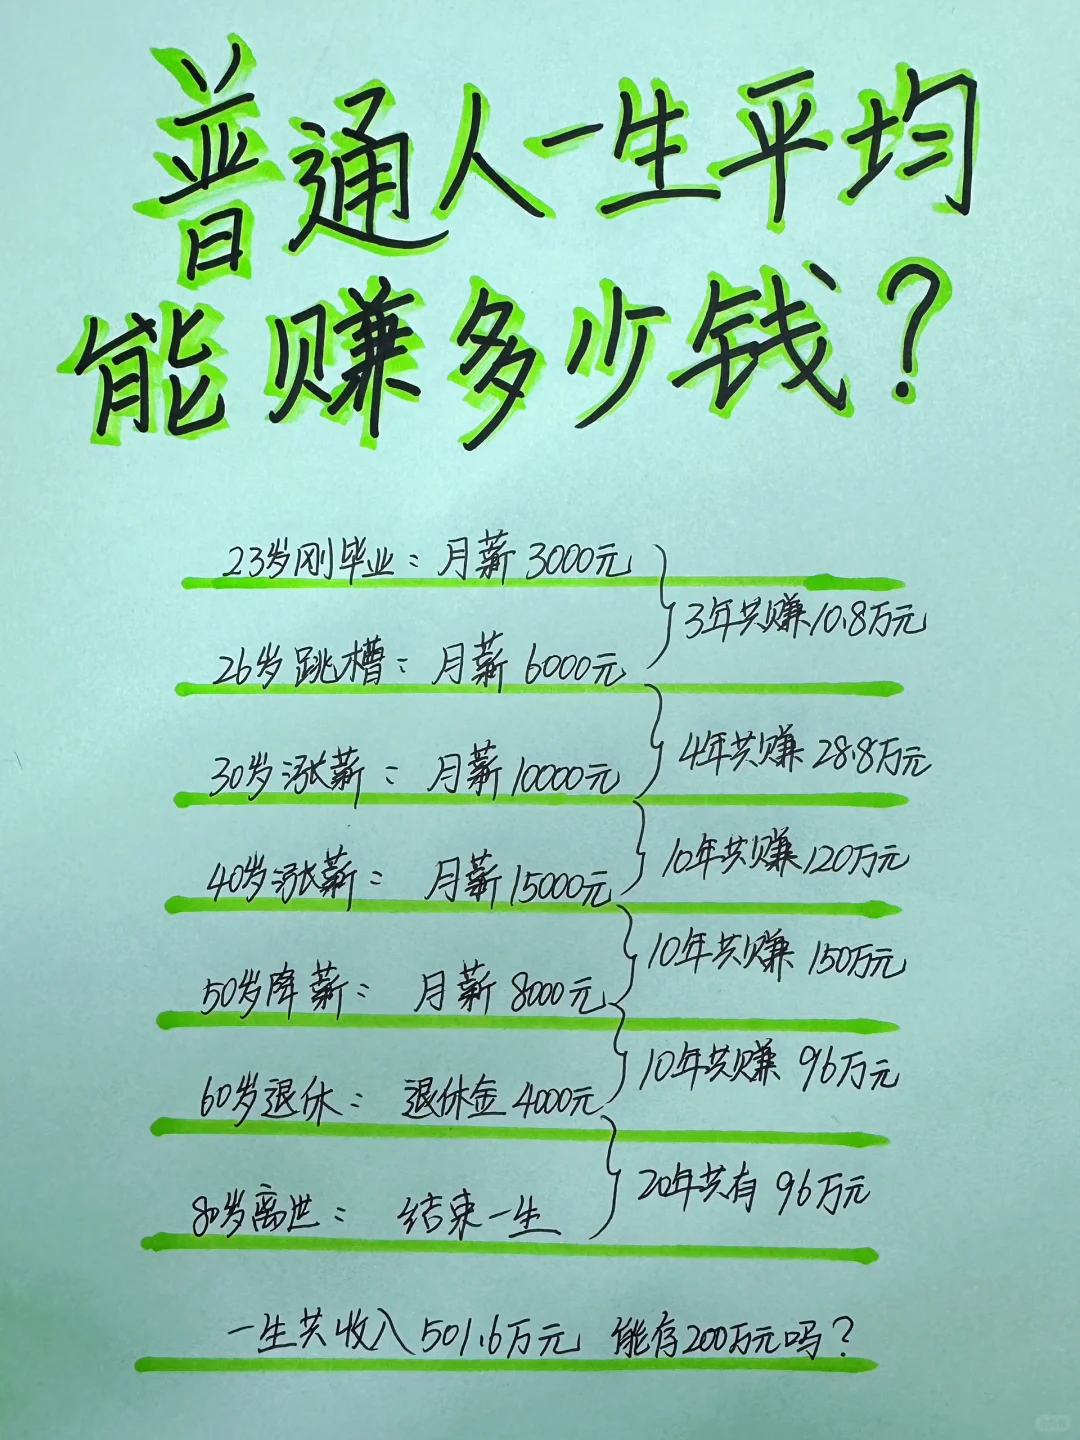 普通人一生平均
能赚多少钱？
23岁刚毕业：月薪3000元
3年共赚10.8万元
26岁跳槽：月薪6000元
4年共赚28.8万元
30岁涨薪：月薪10000元
10年共赚120万元
40岁涨薪：月薪15000元
10年共赚150万元
50岁降薪：月薪8000元
10年共赚96万元
60岁退休：退休金4000元
20年共有96万元
80岁离世：结束一生
一生共收入501.6万元，能存200万元吗？